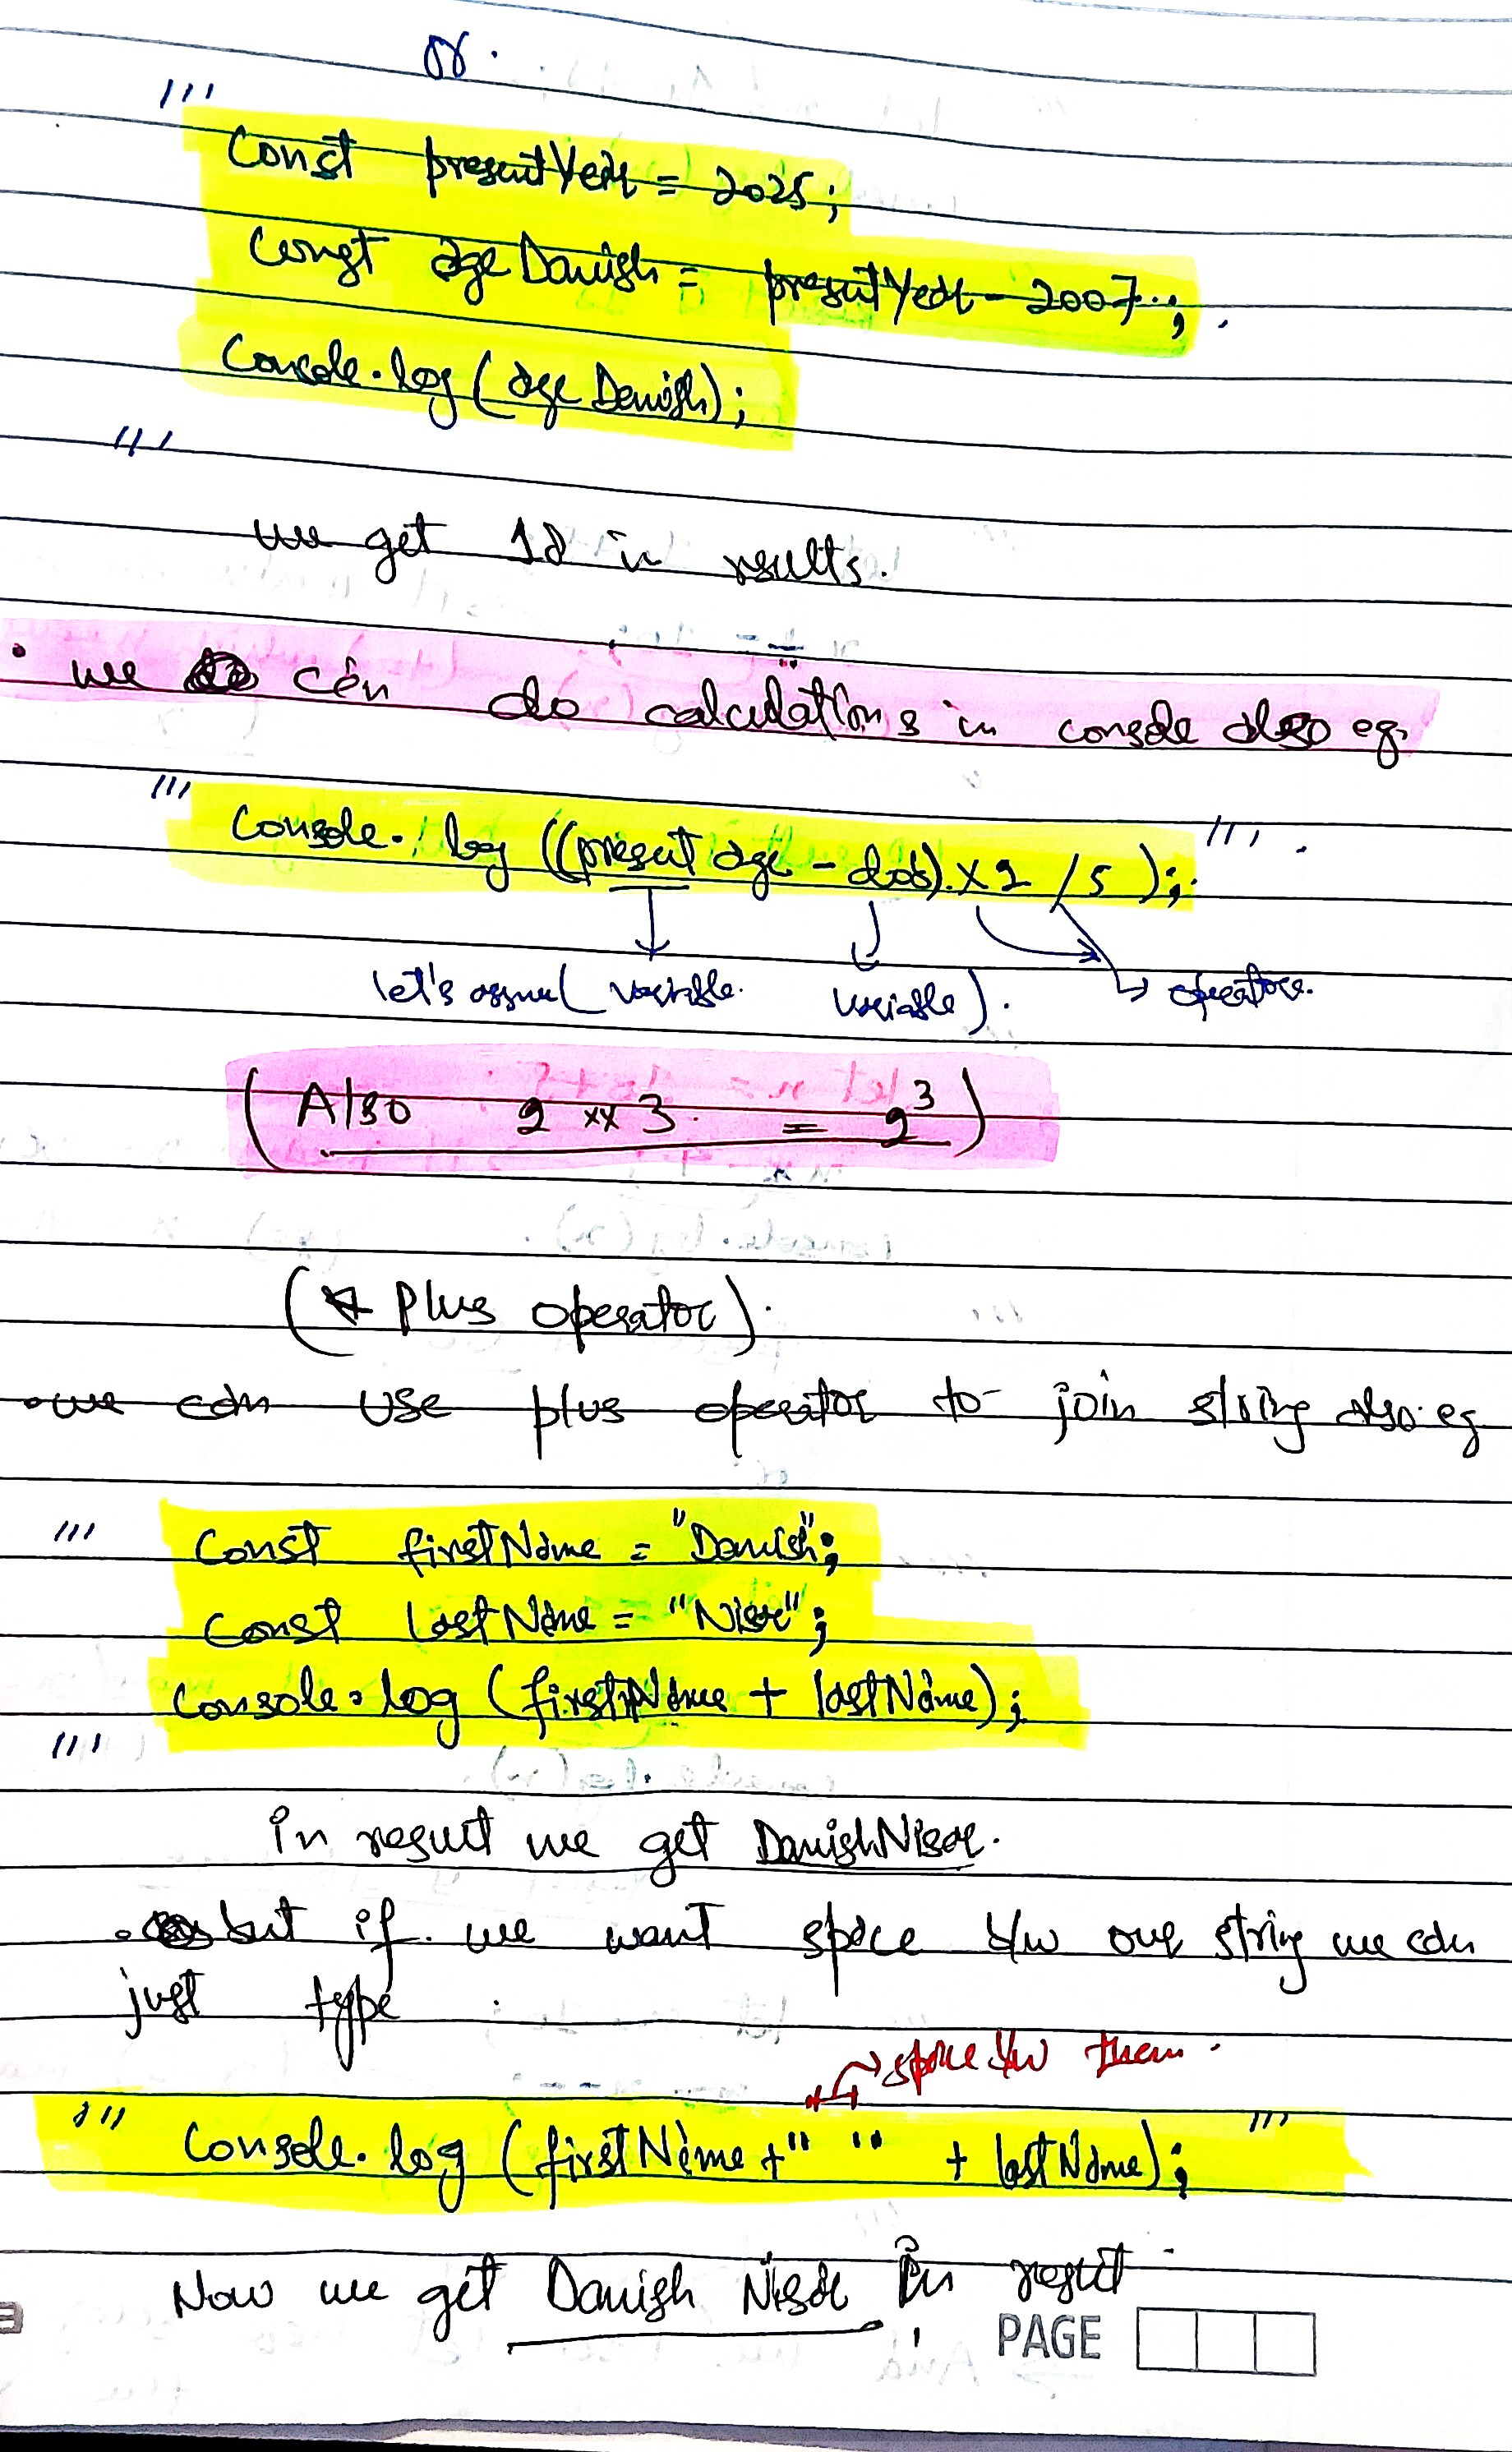 or.
'''
Const presentYear = 2025;
Const ageDanish = presentYear - 2007;
Console.log(ageDanish);
'''
we get 18 in results.
• we can do calculations in console also eg.
''' Console.log((present age - dob) × 2 / 5); '''.
let's assume( variable. variable). ↳ operators.
(Also 2 ** 3 = 2³)
(Plus operator).
• we can use plus operator to join string also eg
''' Const firstName = "Danish";
Const lastName = "Nisar";
Console.log (firstName + lastName);
'''
in result we get DanishNisar.
• but if we want space b/w our string we can
just type
space b/w them.
''' Console.log (firstName + " " + lastName); '''
Now we get Danish Nisar in result
PAGE